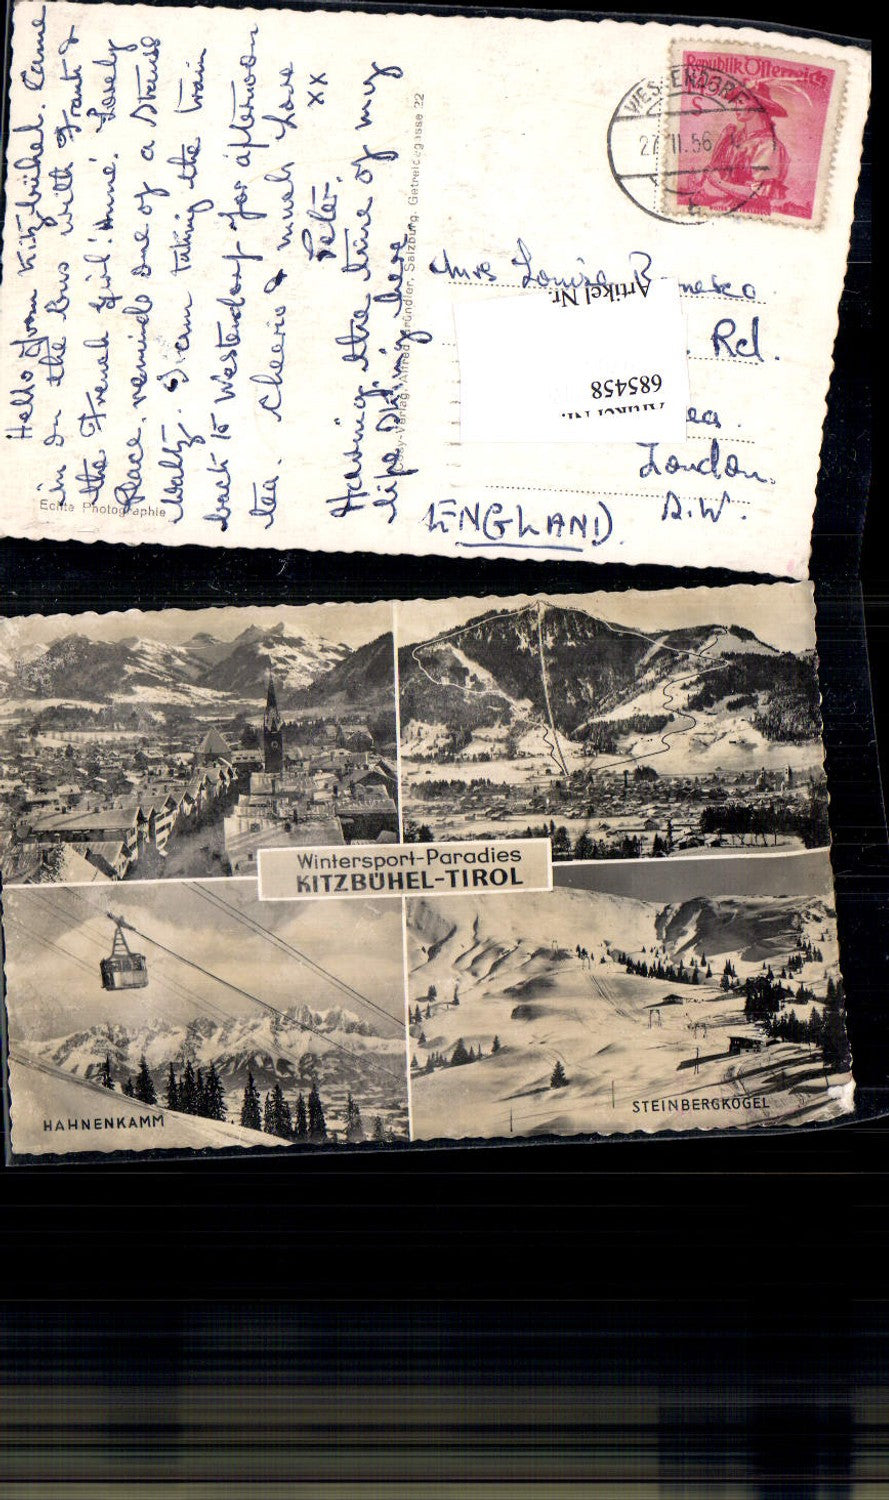 Hello from Kitzbühel. Came
in on the bus with Frank &
the French girl 'Anne'. Lovely
Place, reminds one of a Strauss
Waltz. I am taking the train
back to Westendorf for afternoon
tea. Cheerio & much love
Peter. xx
Having the time of my
life skiing here
Echte Photographie
Cosy-Verlag, Alfred Gründler, Salzburg, Getreidegasse 22
Republik Österreich
S
WESTENDORF
27.II.56
Mrs Louisa
Rd.
London.
S.W.
ENGLAND.
Artikel Nr.
685458
Artikel Nr.
Wintersport-Paradies
KITZBÜHEL-TIROL
HAHNENKAMM
STEINBERGKOGEL